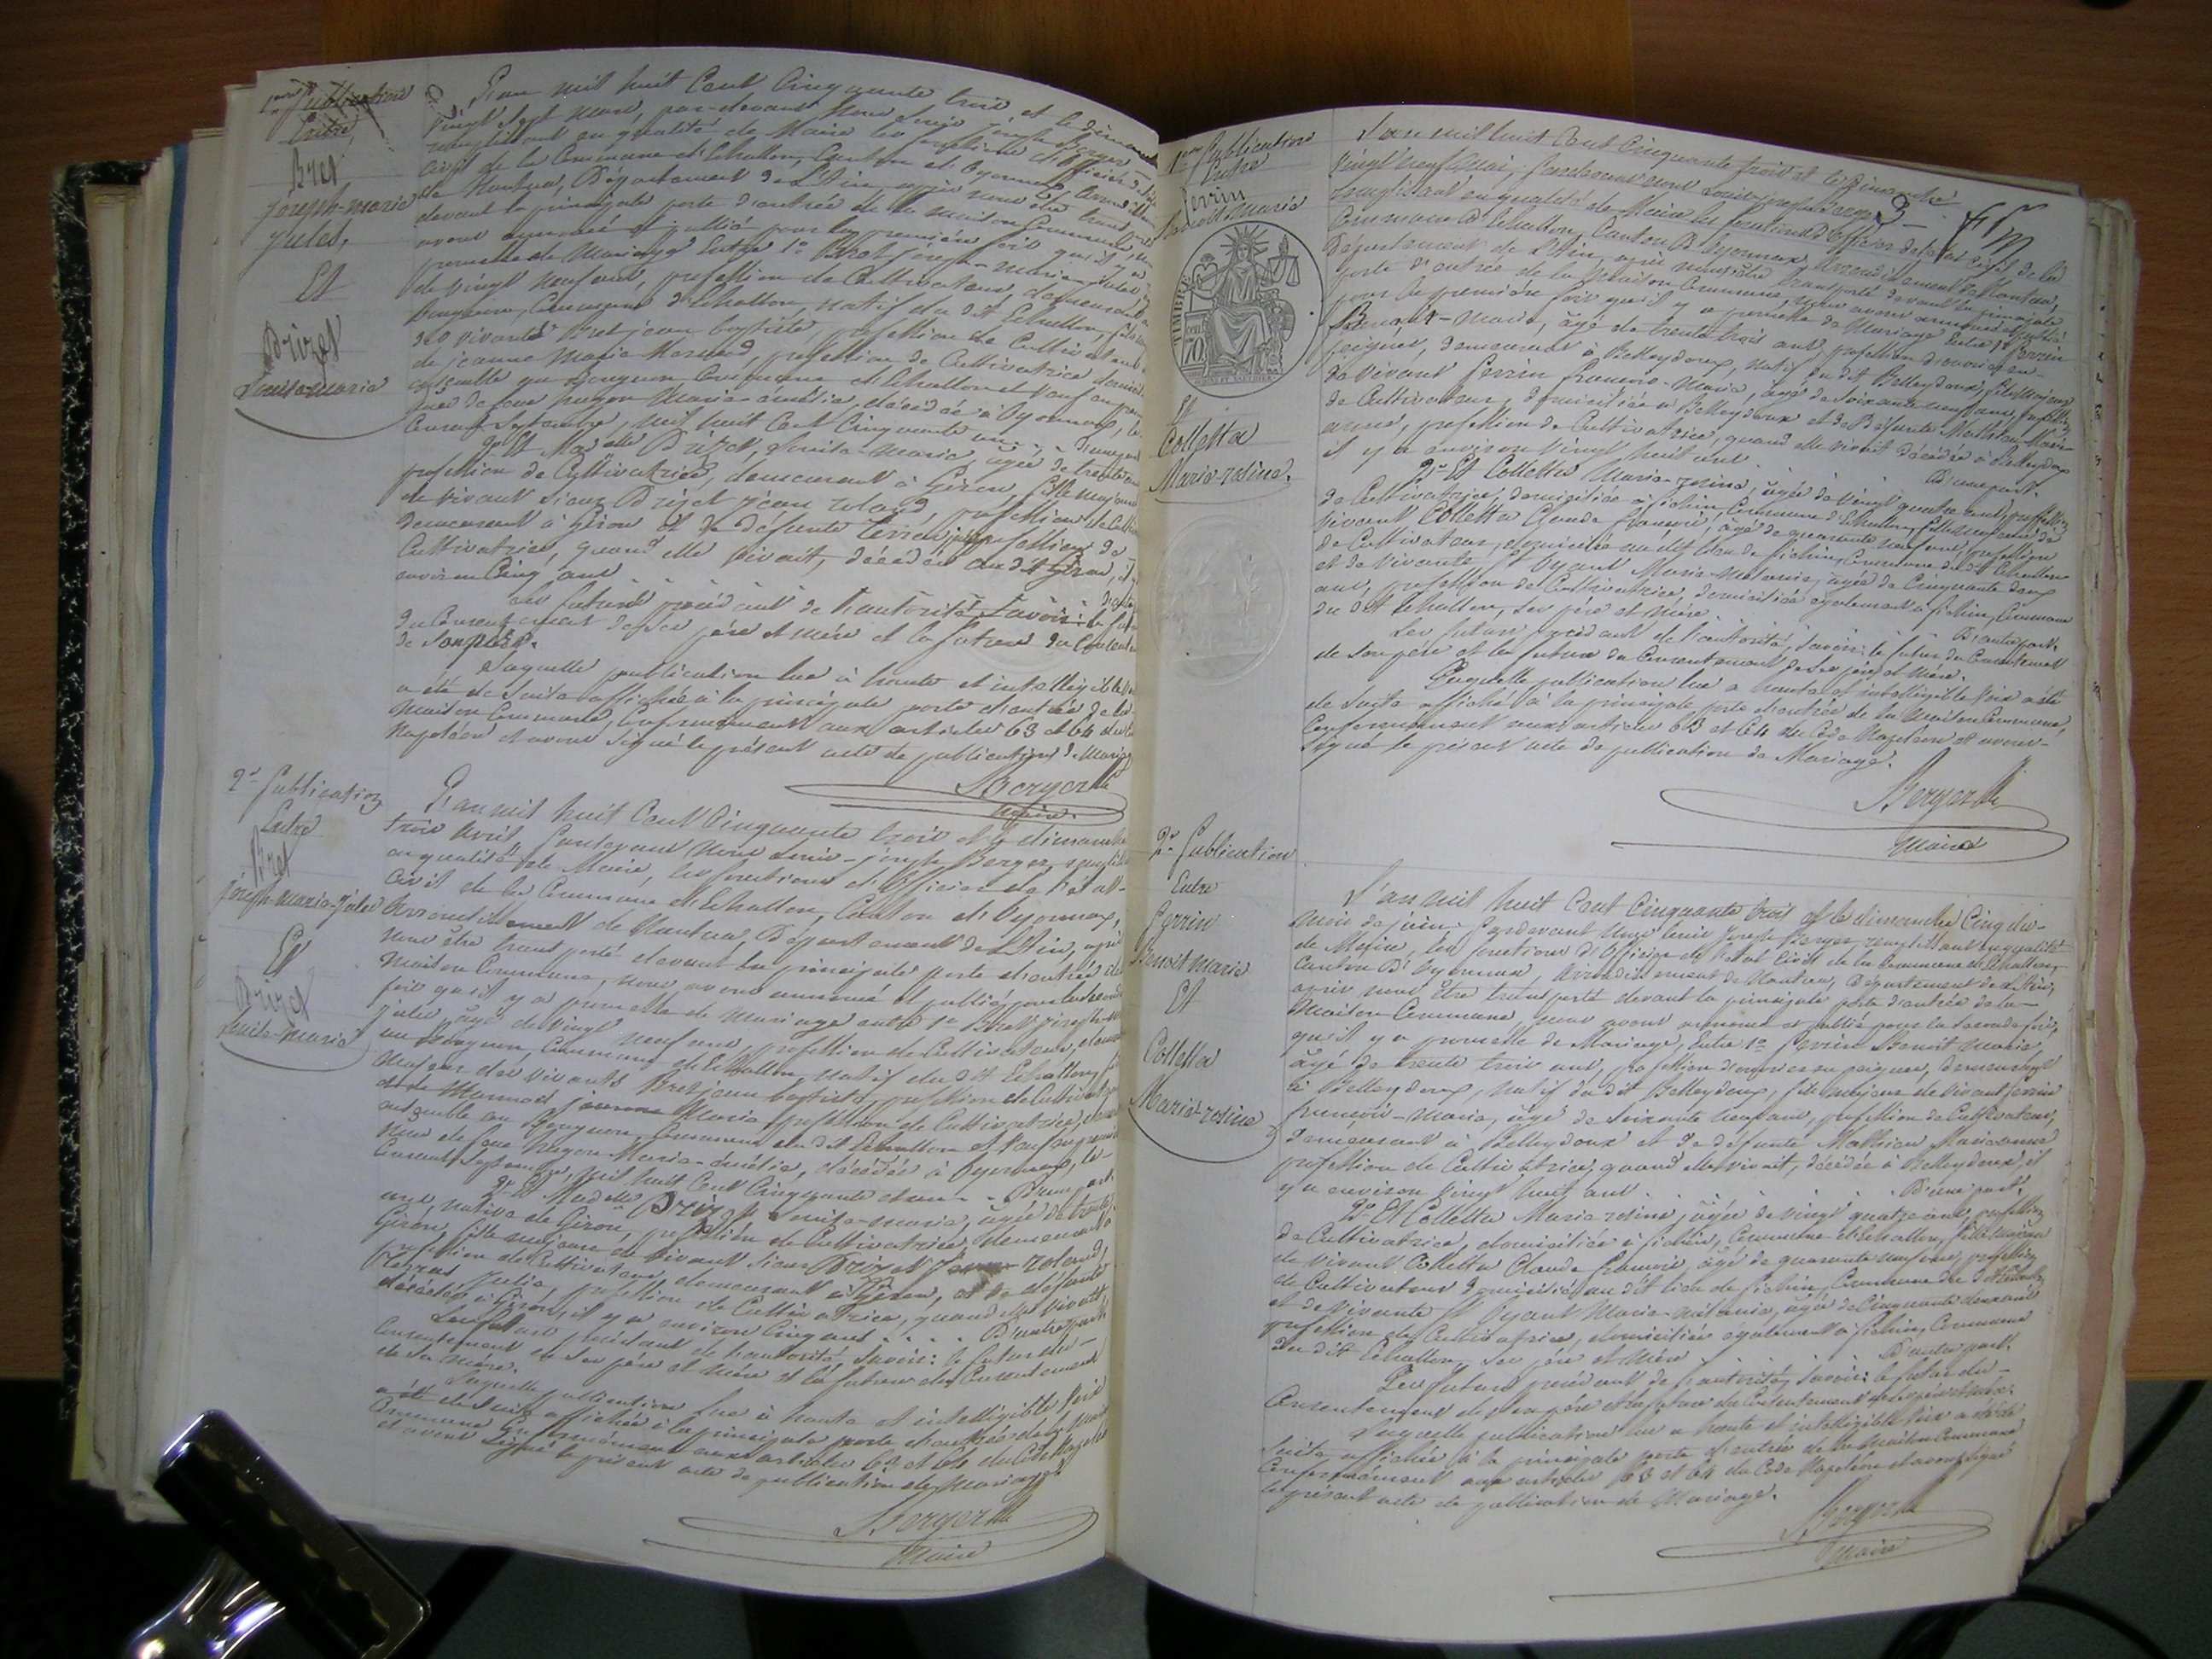 1ère Publication
Entre
Bret
Joseph-marie
jules,
Et
Drizet
Louise-marie
L'an mil huit Cent Cinquante trois et le dimanche
vingt sept mars, par-devant Nous Louis joseph Berger
remplissant en qualité de Maire les fonctions d'officier de l'état
civil de la Commune d'Echallon, Canton d'Oyonnax, Arrondissement
de Nantua, Département de L'Ain, après nous être transporté
devant la principale porte d'entrée de la maison Commune, nous
avons annoncé et publié pour la première fois qu'il y a
promesse de Mariage Entre 1° Bret joseph-marie-jules,
de vingt neuf ans, profession de Cultivateur, demeurant
Commune d'Echallon, natif du dit Echallon, fils
des vivants Bret jean baptiste, profession de Cultivateur
de jeanne Marie profession de Cultivatrice
ensemble au Commune d'Echallon et Veuf en
de feue Marie-amélie, décédée à Oyonnax, le
Septembre, mil huit Cent Cinquante un D'une part
2° Et Madelle Drizet, Louise-Marie, âgée de trente
profession de Cultivatrice, demeurant à Giron, fille majeure
de vivant sieur Drizet jean roland, profession de
demeurant à Giron et de défunte profession de
Cultivatrice, quand elle vivait, décédée au dit Giron, il
environ Cinq ans
Les futurs procédant de l'autorité, Savoir: le futur
du Consentement de ses père et mère et la future du Consentement
de son père.
Laquelle publication lue à haute et intelligible
a été de suite affichée à la principale porte d'entrée de la
Maison Commune, Conformément aux articles 63 et 64 du
Napoléon et avons signé le présent acte de publication de Mariage
Berger
Maire.
2e Publication
Entre
Bret
joseph-marie-Jules
Et
Drizet
Louise-Marie
L'an mil huit Cent Cinquante trois et le dimanche
trois avril, Pardevant Nous Louis-joseph Berger,
en qualité de Maire, les fonctions d'officier de l'état-
Civil de la Commune d'Echallon, Canton d'Oyonnax,
Arrondissement de Nantua, Département de L'Ain, après
nous être transporté devant la principale porte d'entrée de
Maison Commune, nous avons annoncé et publié, pour la seconde
fois qu'il y a promesse de Mariage entre 1° Bret joseph
jules, âgé de vingt neuf ans, profession de Cultivateur,
au Commune d'Echallon, natif du dit Echallon,
des vivants Bret jean baptiste, profession de Cultivateur
et de Marie profession de Cultivatrice,
ensemble au Commune du dit Echallon et Veuf
de feue Marie-amélie, décédée à Oyonnax, le
Septembre, mil huit Cent Cinquante et un D'une part
2° Et Madelle Drizet Louise-marie, âgée de trente
ans, native de Giron, profession de Cultivatrice, demeurant à
Giron, fille majeure de vivant sieur Drizet roland,
profession de Cultivateur demeurant à Giron, et de défunte
Julie, profession de Cultivatrice, quand elle vivait,
décédée à Giron, il y a environ Cinq ans D'autre part
Les futurs procédant de l'autorité, Savoir: le futur du
Consentement de ses père et mère et la future du Consentement
de
Laquelle publication lue à haute et intelligible Voix
a été de suite affichée à la principale porte d'entrée de la Maison
Commune Conformément aux articles 63 et 64 du Code Napoléon
et avons signé le présent acte de publication de Mariage.
Berger
Maire
1ère Publication
Entre
Perrin
Benoit Marie
TIMBRE
70
Et
Colletta
Marie-rosine.
L'an mil huit Cent Cinquante trois et le Dimanche
Vingt neuf Mai, Pardevant nous Louis-joseph Berger
remplissant en qualité de Maire les fonctions d'Officier de l'état Civil de la
Commune d'Echallon, Canton D'Oyonnax, Arrondissement de Nantua,
Département de L'Ain, après nous être transporté devant la principale
porte d'entrée de la Maison Commune, nous avons annoncé et publié
pour la première fois qu'il y a promesse de Mariage Entre 1° Perrin
Benoit-Marie, âgé de trente trois ans, profession d'ouvrier en
peignes, demeurant à Belleydoux, natif du dit Belleydoux, fils Majeur
de Vivant Perrin François-Marie, âgé de Soixante neuf ans, profession
de Cultivateur, domicilié à Belleydoux et de Défunte Mathieu Marie-
anne, profession de Cultivatrice, quand elle vivait décédée à Belleydoux
il y a environ Vingt huit ans D'une part.
2° Et Colletta Marie-rosine, âgée de Vingt quatre ans, profession
de Cultivatrice, domiciliée à Commune d'Echallon, fille majeure de
Vivant Colletta Claude François, âgé de quarante neuf ans, profession
de Cultivateur, domicilié au dit lieu de Commune du dit Echallon
et de Vivante Marie-Mélanie, âgée de Cinquante deux
ans, profession de Cultivatrice, domiciliée également à Commune
du dit Echallon, ses père et Mère D'autre part.
Les futurs procédant de l'autorité, Savoir: le futur du Consentement
de son père et la future du Consentement de ses père et Mère.
Laquelle publication lue a haute et intelligible Voix a été
de suite affiché à la principale porte d'entrée de la Maison Commune,
Conformément aux articles 63 et 64 du Code Napoléon et avons
signé le présent acte de publication de Mariage.
Berger
Maire
2e Publication
Entre
Perrin
Benoit Marie
Et
Colletta
Marie-rosine
L'an mil huit Cent Cinquante trois et le dimanche Cinq du
mois de juin, Pardevant Nous Louis Joseph Berger, remplissant en qualité
de Maire, les fonctions d'Officier de l'état Civil de la Commune d'Echallon,
Canton D'Oyonnax, Arrondissement de Nantua, Département de L'Ain,
après nous être transporté devant la principale porte d'entrée de la
Maison Commune nous avons annoncé et publié pour la Seconde fois,
qu'il y a promesse de Mariage, Entre 1° Perrin Benoit Marie,
âgé de trente trois ans, profession d'ouvrier en peignes, demeurant
à Belleydoux, natif du dit Belleydoux, fils majeur de vivant Perrin
françois-Marie, âgé de Soixante neuf ans, profession de Cultivateur,
demeurant à Belleydoux et de défunte Mathieu Marieanne
profession de Cultivatrice, quand elle vivait, décédée à Belleydoux, il
y a environ Vingt huit ans D'une part.
2° Et Colletta Marie rosine, âgée de vingt quatre ans, profession
de Cultivatrice, domiciliée à Commune d'Echallon, fille Majeure
de vivant Colletta Claude françois, âgé de quarante neuf ans, profession
de Cultivateur domicilié au dit lieu de Commune du dit Echallon
et de Vivante Marie-mélanie, agée de Cinquante deux ans
profession de Cultivatrice, domiciliée également à Commune
du dit Echallon, ses père et Mère D'autre part.
Les futurs procédant de l'autorité, Savoir: le futur du
Consentement de son père et la future du Consentement de ses père et mère.
Laquelle publication lue a haute et intelligible Voix a été de
suite affichée à la principale porte d'entrée de la Maison Commune
Conformément aux articles 63 et 64 du Code Napoléon et avons signé
le présent acte de publication de Mariage.
Berger
Maire